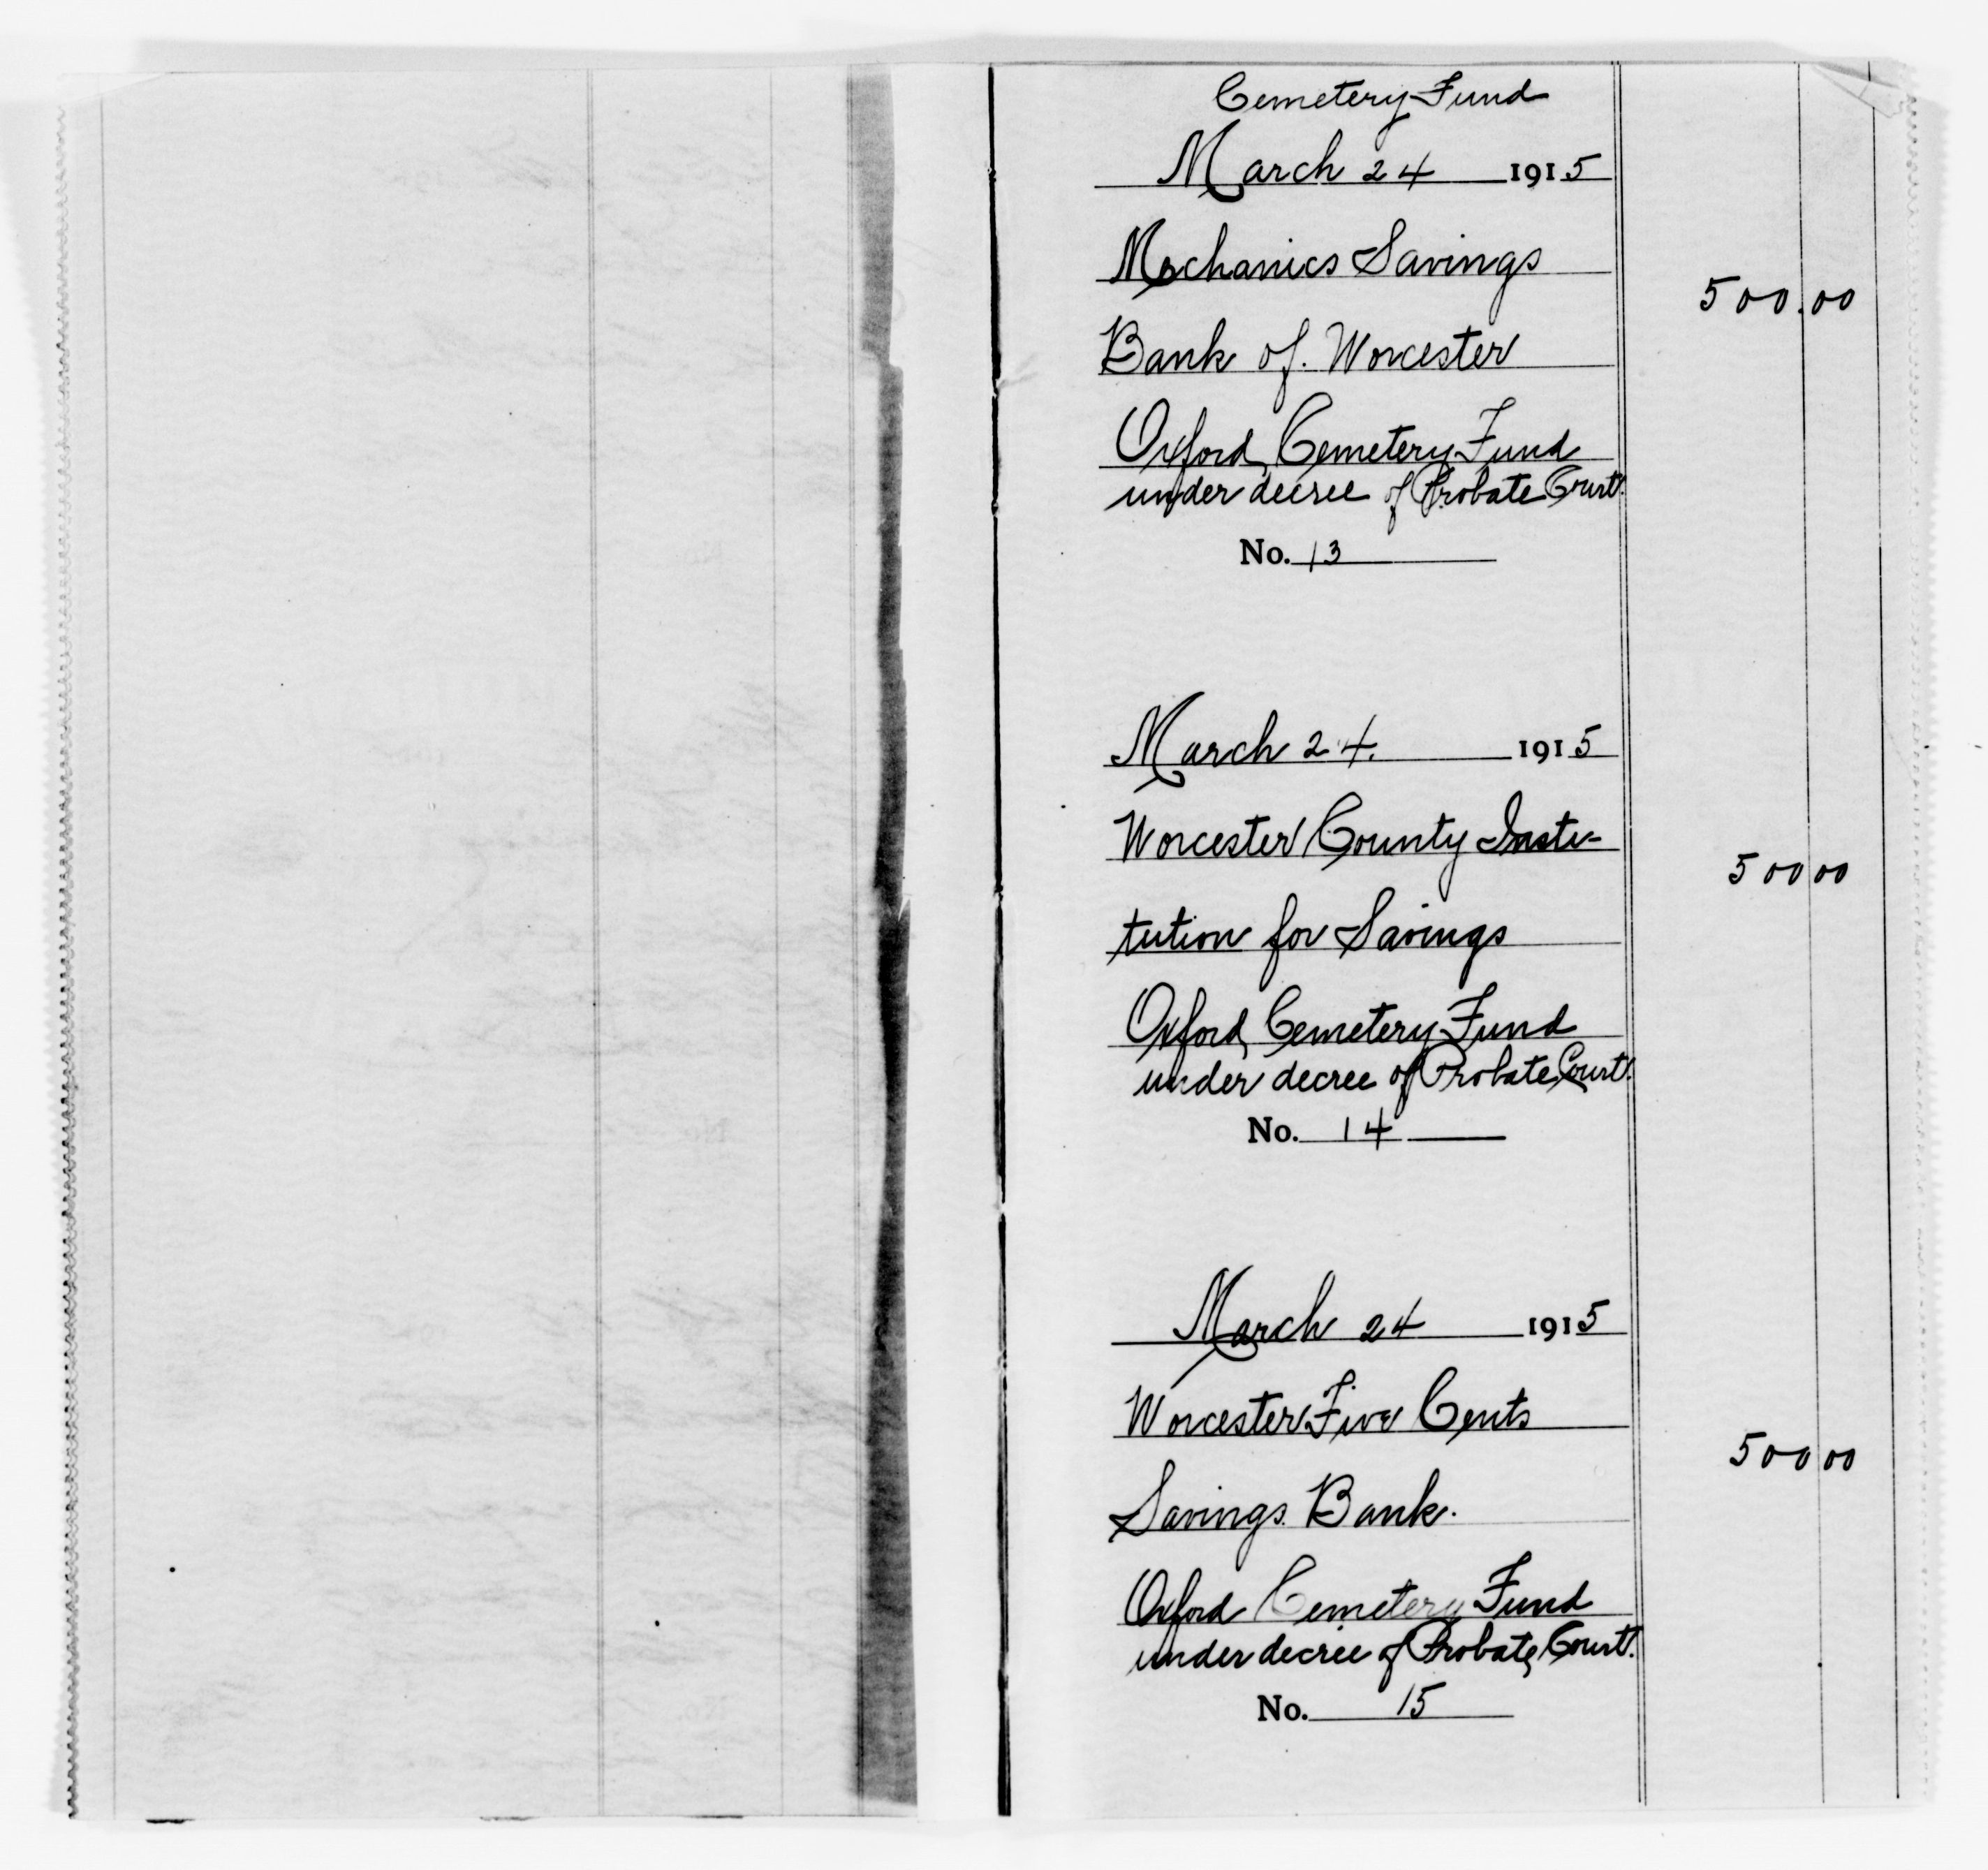 Cemetery Fund
March 24 1915
Mechanics Savings
500.00
Bank of. Worcester
Oxford Cemetery Fund
under decree of Probate Court.
No. 13
March 24. 1915
Worcester County Insti-
500 00
tution for Savings
Oxford Cemetery Fund
under decree of Probate Court.
No. 14
March 24 1915
Worcester Five Cents
500 00
Savings Bank.
Oxford Cemetery Fund
under decree of Probate Court.
No. 15